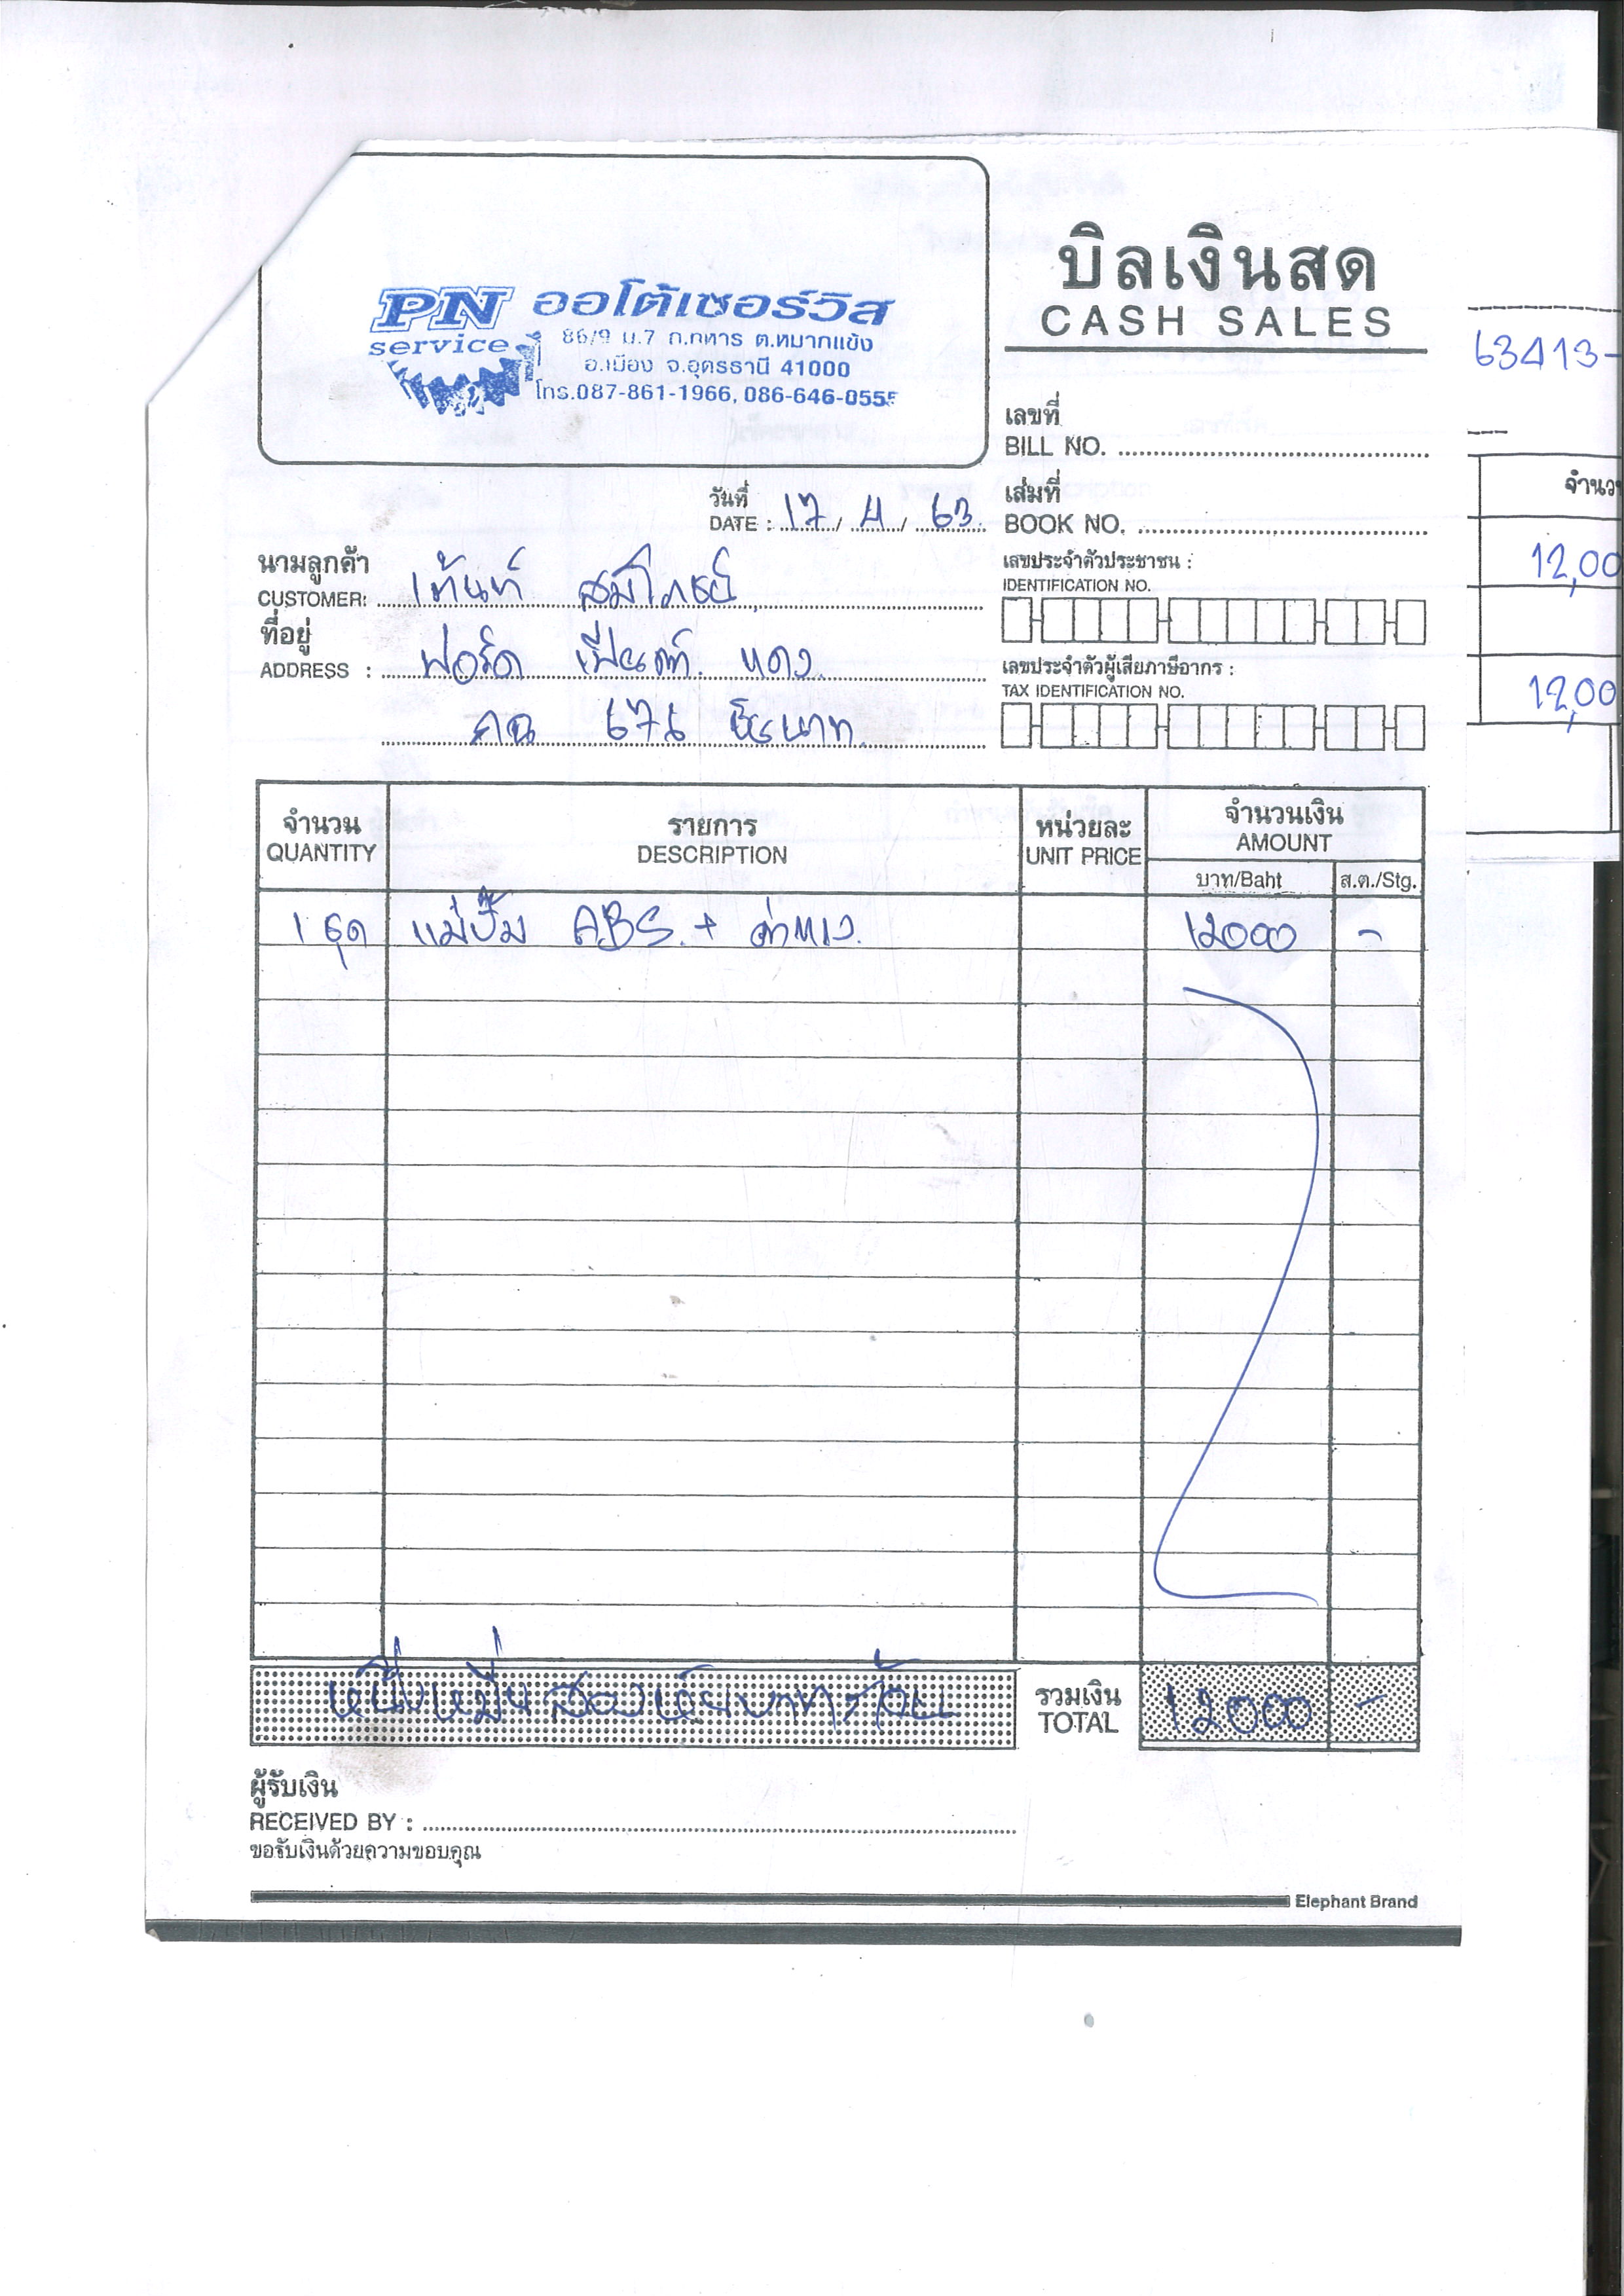 PN ออโต้เซอร์วิส
service
86/9 ม.7 ถ.ทหาร ต.หมากแข้ง
อ.เมือง จ.อุดรธานี 41000
โทร.087-861-1966, 086-646-0555
บิลเงินสด
CASH SALES
63413-
เลขที่
BILL NO.
วันที่
DATE : 17 / 4 / 63
เล่มที่
BOOK NO.
จำนว
นามลูกค้า
CUSTOMER: เต้นท์
เลขประจำตัวประชาชน :
IDENTIFICATION NO.
12,00
ที่อยู่
ADDRESS : ฟอร์ด แดง
เลขประจำตัวผู้เสียภาษีอากร :
TAX IDENTIFICATION NO.
12,00
676 ชัยนาท
จำนวน
QUANTITY
รายการ
DESCRIPTION
หน่วยละ
UNIT PRICE
จำนวนเงิน
AMOUNT
บาท/Baht
ส.ต./Stg.
1 ชุด แม่ปั๊ม ABS. + ค่าแรง 12000 -
หนึ่งหมื่นสองพันบาทถ้วน
รวมเงิน
TOTAL
12000 -
ผู้รับเงิน
RECEIVED BY :
ขอรับเงินด้วยความขอบคุณ
Elephant Brand